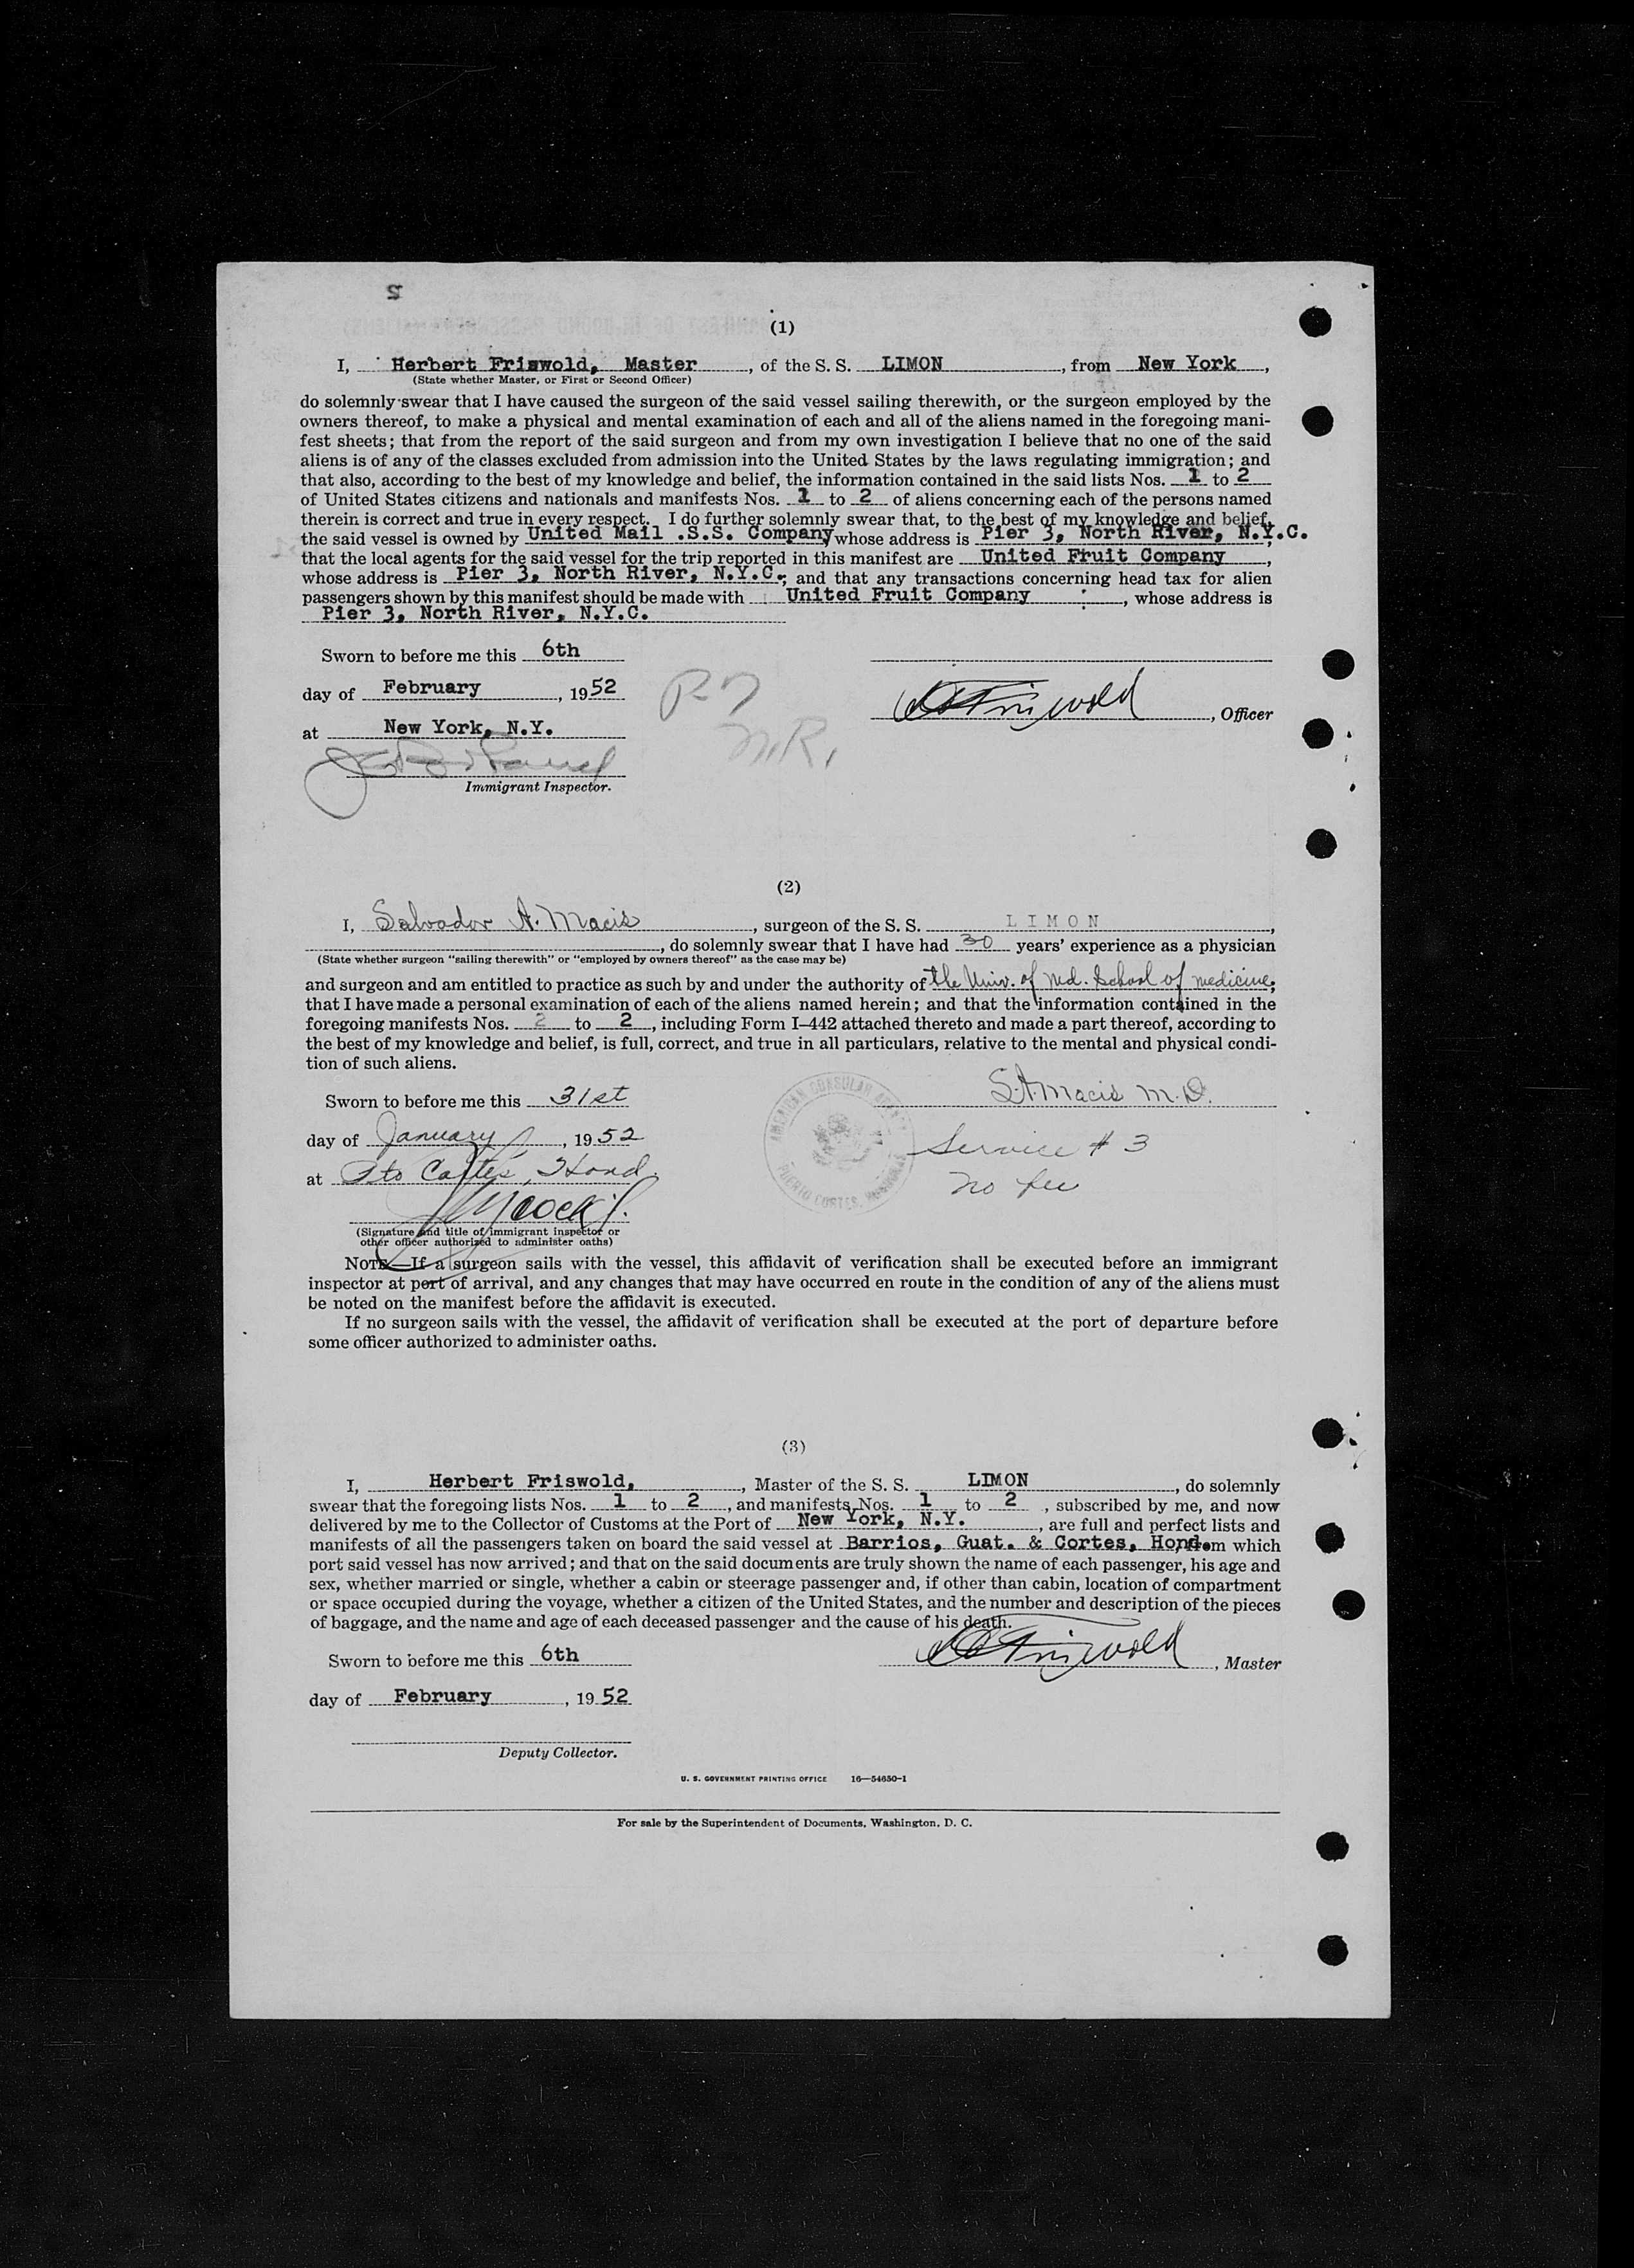 (1)
I, Herbert Friswold, Master, of the S. S. LIMON, from New York,
(State whether Master, or First or Second Officer)
do solemnly swear that I have caused the surgeon of the said vessel sailing therewith, or the surgeon employed by the
owners thereof, to make a physical and mental examination of each and all of the aliens named in the foregoing mani-
fest sheets; that from the report of the said surgeon and from my own investigation I believe that no one of the said
aliens is of any of the classes excluded from admission into the United States by the laws regulating immigration; and
that also, according to the best of my knowledge and belief, the information contained in the said lists Nos. 1 to 2
of United States citizens and nationals and manifests Nos. 1 to 2 of aliens concerning each of the persons named
therein is correct and true in every respect. I do further solemnly swear that, to the best of my knowledge and belief,
the said vessel is owned by United Mail .S.S. Company whose address is Pier 3, North River, N.Y.C.
that the local agents for the said vessel for the trip reported in this manifest are United Fruit Company,
whose address is Pier 3, North River, N.Y.C.; and that any transactions concerning head tax for alien
passengers shown by this manifest should be made with United Fruit Company, whose address is
Pier 3, North River, N.Y.C.
Sworn to before me this 6th
day of February, 1952
Friswold, Officer
at New York, N.Y.
P-7
N.R.
Immigrant Inspector.
(2)
I, Salvador A. Macis, surgeon of the S. S. LIMON,
, do solemnly swear that I have had 30 years' experience as a physician
(State whether surgeon "sailing therewith" or "employed by owners thereof" as the case may be)
and surgeon and am entitled to practice as such by and under the authority of the Univ. of Md. School of medicine;
that I have made a personal examination of each of the aliens named herein; and that the information contained in the
foregoing manifests Nos. 2 to 2, including Form I–442 attached thereto and made a part thereof, according to
the best of my knowledge and belief, is full, correct, and true in all particulars, relative to the mental and physical condi-
tion of such aliens.
Sworn to before me this 31st
S.A. Macis M.D.
day of January, 1952
AMERICAN CONSULAR AGENCY PUERTO CORTES, HONDURAS
Service # 3
at Pto Cortes, Hond.
No fee
(Signature and title of immigrant inspector or
other officer authorized to administer oaths)
NOTE.—If a surgeon sails with the vessel, this affidavit of verification shall be executed before an immigrant
inspector at port of arrival, and any changes that may have occurred en route in the condition of any of the aliens must
be noted on the manifest before the affidavit is executed.
If no surgeon sails with the vessel, the affidavit of verification shall be executed at the port of departure before
some officer authorized to administer oaths.
(3)
I, Herbert Friswold, , Master of the S. S. LIMON, do solemnly
swear that the foregoing lists Nos. 1 to 2, and manifests Nos. 1 to 2, subscribed by me, and now
delivered by me to the Collector of Customs at the Port of New York, N.Y., are full and perfect lists and
manifests of all the passengers taken on board the said vessel at Barrios, Guat. & Cortes, Hond. from which
port said vessel has now arrived; and that on the said documents are truly shown the name of each passenger, his age and
sex, whether married or single, whether a cabin or steerage passenger and, if other than cabin, location of compartment
or space occupied during the voyage, whether a citizen of the United States, and the number and description of the pieces
of baggage, and the name and age of each deceased passenger and the cause of his death.
Sworn to before me this 6th
Friswold, Master
day of February, 1952
Deputy Collector.
U. S. GOVERNMENT PRINTING OFFICE 16—54650-1
For sale by the Superintendent of Documents, Washington, D. C.